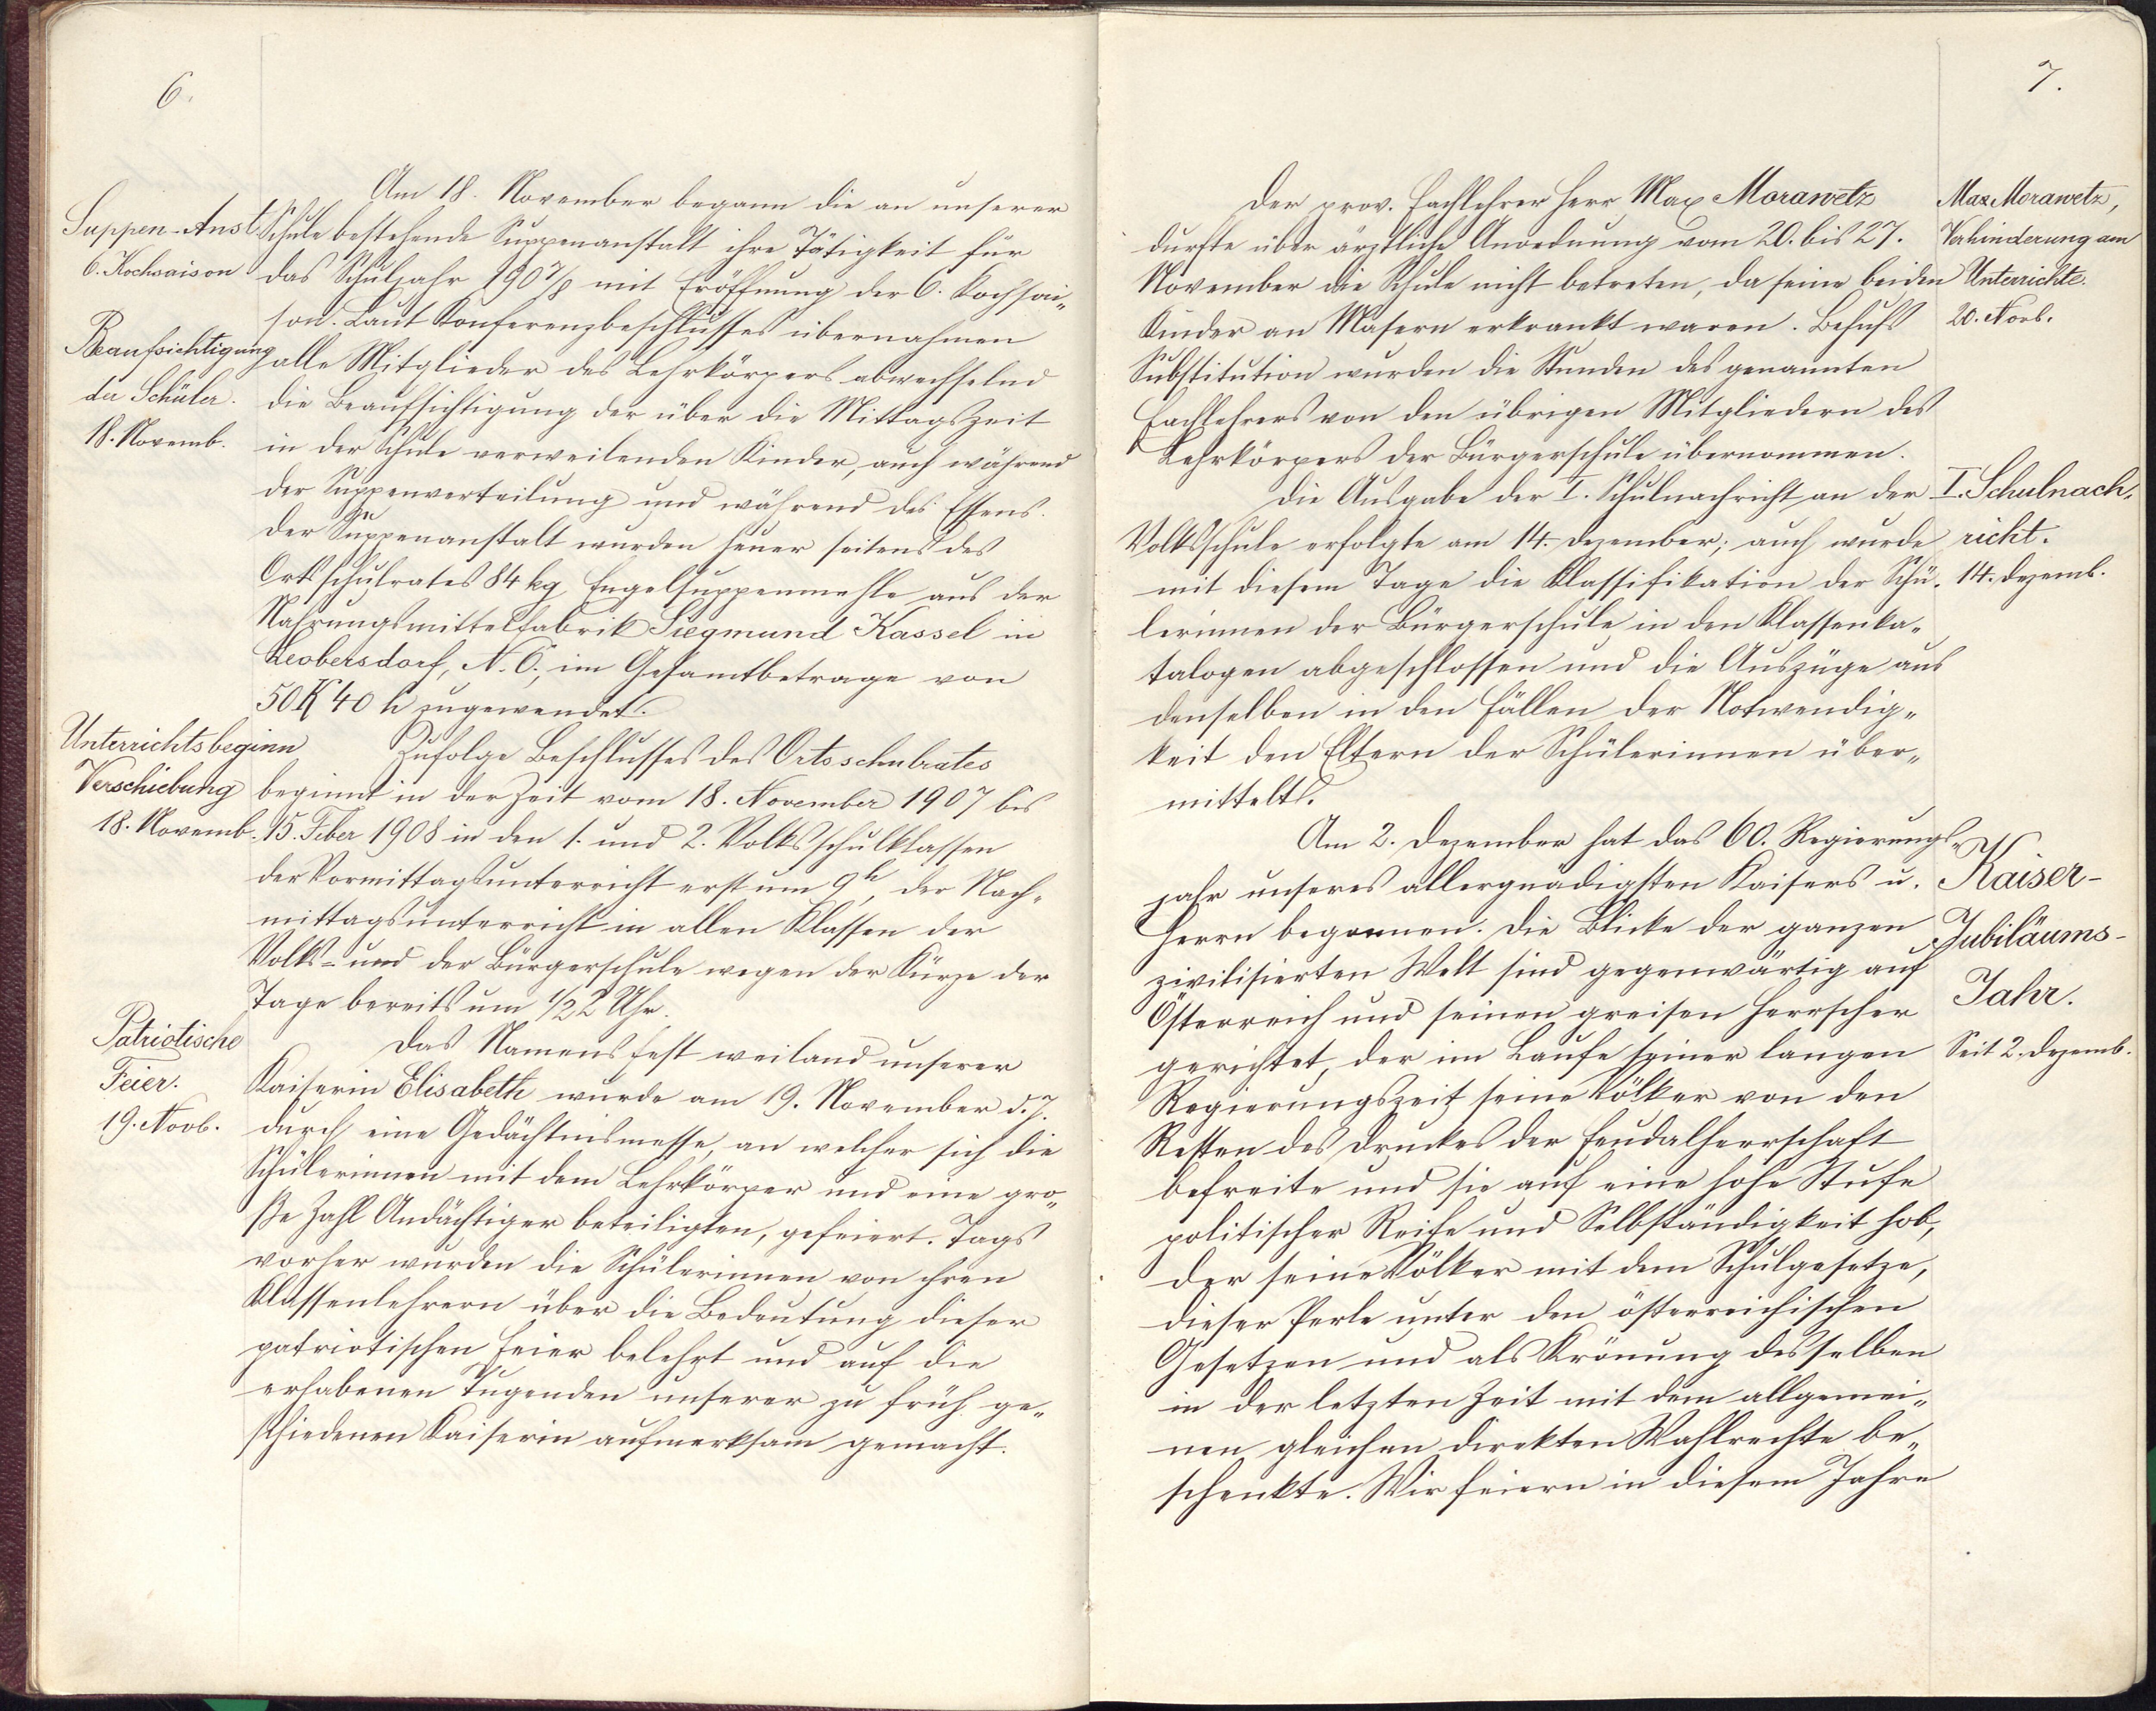 6.
Suppen-Anst.
6. Kochsaison
Beaufsichtigung
der Schüler.
18. Novemb.
Am 18. November begann die an unserer
Schule bestehende Suppenanstalt ihre Tätigkeit für
das Schuljahr 1907/8 mit Eröffnung der 6. Kochsai-
son. Laut Konferenzbeschlusses übernahmen
alle Mitglieder des Lehrkörpers abwechselnd
die Beaufsichtigung der über die Mittagszeit
in der Schule verweilenden Kinder, auch während
der Suppenverteilung und während des Essens.
Der Suppenanstalt wurden heuer seitens des
Ortsschulrates 84 kg Engelsuppenmehle aus der
Nahrungsmittelfabrik Siegmund Kassel in
Leobersdorf, N. Ö., im Gesamtbetrage von
50 K 40 h zugewendet.
Unterrichtsbeginn
Verschiebung
18. Novemb.
Zufolge Beschlusses des Ortsschulrates
beginnt in der Zeit vom 18. November 1907 bis
15. Feber 1908 in den 1. und 2. Volksschulklassen
der Vormittagsunterricht erst um 9h, der Nach-
mittagsunterricht in allen Klassen der
Volks- und der Bürgerschule wegen der Kürze der
Tage bereits um 1/2 2 Uhr.
Patriotische
Feier.
19. Novb.
Das Namensfest weiland unserer
Kaiserin Elisabeth wurde am 19. November d. J.
durch eine Gedächtnismesse, an welcher sich die
Schülerinnen mit dem Lehrkörper und eine gro-
ße Zahl Andächtiger beteiligten, gefeiert. Tags
vorher wurden die Schülerinnen von ihren
Klassenlehrern über die Bedeutung dieser
patriotischen Feier belehrt und auf die
erhabenen Tugenden unserer zu früh ge-
schiedenen Kaiserin aufmerksam gemacht.
7.
Der prov. Fachlehrer Herr Max Morawetz
durfte über ärztliche Anordnung vom 20. bis 27.
November die Schule nicht betreten, da seine beiden
Kinder an Masern erkrankt waren. Behufs
Substitution wurden die Stunden des genannten
Fachlehrers von den übrigen Mitgliedern des
Lehrkörpers der Bürgerschule übernommen.
Max Morawetz,
Verhinderung am
Unterrichte.
20. Novb.
Die Ausgabe der I. Schulnachricht an der
Volksschule erfolgte am 14. Dezember; auch wurde
mit diesem Tage die Klassifikation der Schü-
lerinnen der Bürgerschule in den Klassenka-
talogen abgeschlossen und die Auszüge aus
denselben in den Fällen der Notwendig-
keit den Eltern der Schülerinnen über-
mittelt.
I. Schulnach-
richt.
14. Dezemb.
Am 2. Dezember hat das 60. Regierungs-
jahr unseres allergnädigsten Kaisers u.
Herrn begonnen. Die Blicke der ganzen
zivilisierten Welt sind gegenwärtig auf
Österreich und seinen greisen Herrscher
gerichtet, der im Laufe seiner langen
Regierungszeit seine Völker von den
Resten des Druckes der Feudalherrschaft
befreite und sie auf eine hohe Stufe
politischer Reife und Selbständigkeit hob,
der seine Völker mit dem Schulgesetze,
dieser Perle unter den österreichischen
Gesetzen und als Krönung desselben
in der letzten Zeit mit dem allgemei-
nen gleichen direkten Wahlrechte be-
schenkte. Wir feiern in diesem Jahre
Kaiser-
Jubiläums-
Jahr.
Seit 2. Dezemb.